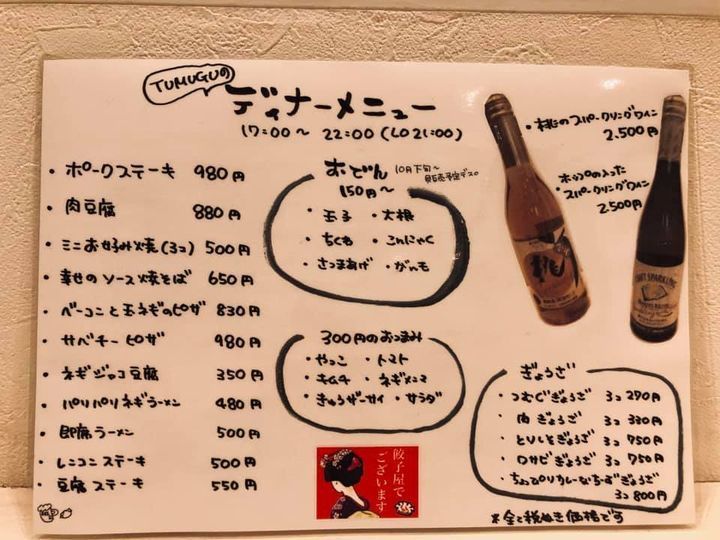 TUMUGUの
ディナーメニュー
17:00〜 22:00 (LO 21:00)
・ポークステーキ 980円
・肉豆腐 880円
・ミニお好み焼(3コ) 500円
・幸せのソース焼そば 650円
・ベーコンと玉ネギのピザ 830円
・サバチーピザ 980円
・ネギジャコ豆腐 350円
・パリパリネギラーメン 480円
・即席ラーメン 500円
・レンコンステーキ 500円
・豆腐ステーキ 550円
おでん 10月下旬〜
販売予定デス。
150円〜
・玉子 ・大根
・ちくわ ・こんにゃく
・さつまあげ ・がんも
300円のおつまみ
・やっこ ・トマト
・キムチ ・ネギメンマ
・きゅうザーサイ ・サラダ
餃子屋で
ございます
・桃のスパークリングワイン
2.500円
ホップの入った
・スパークリングワイン
2.500円
桃
ぎょうざ
・つむぐぎょうざ 3コ 290円
・肉ぎょうざ 3コ 330円
・とりしそぎょうざ 3コ 750円
・ワサビぎょうざ 3コ 750円
・ちょっぴりカレーなちーずぎょうざ
3コ 800円
※全て税ぬき価格です